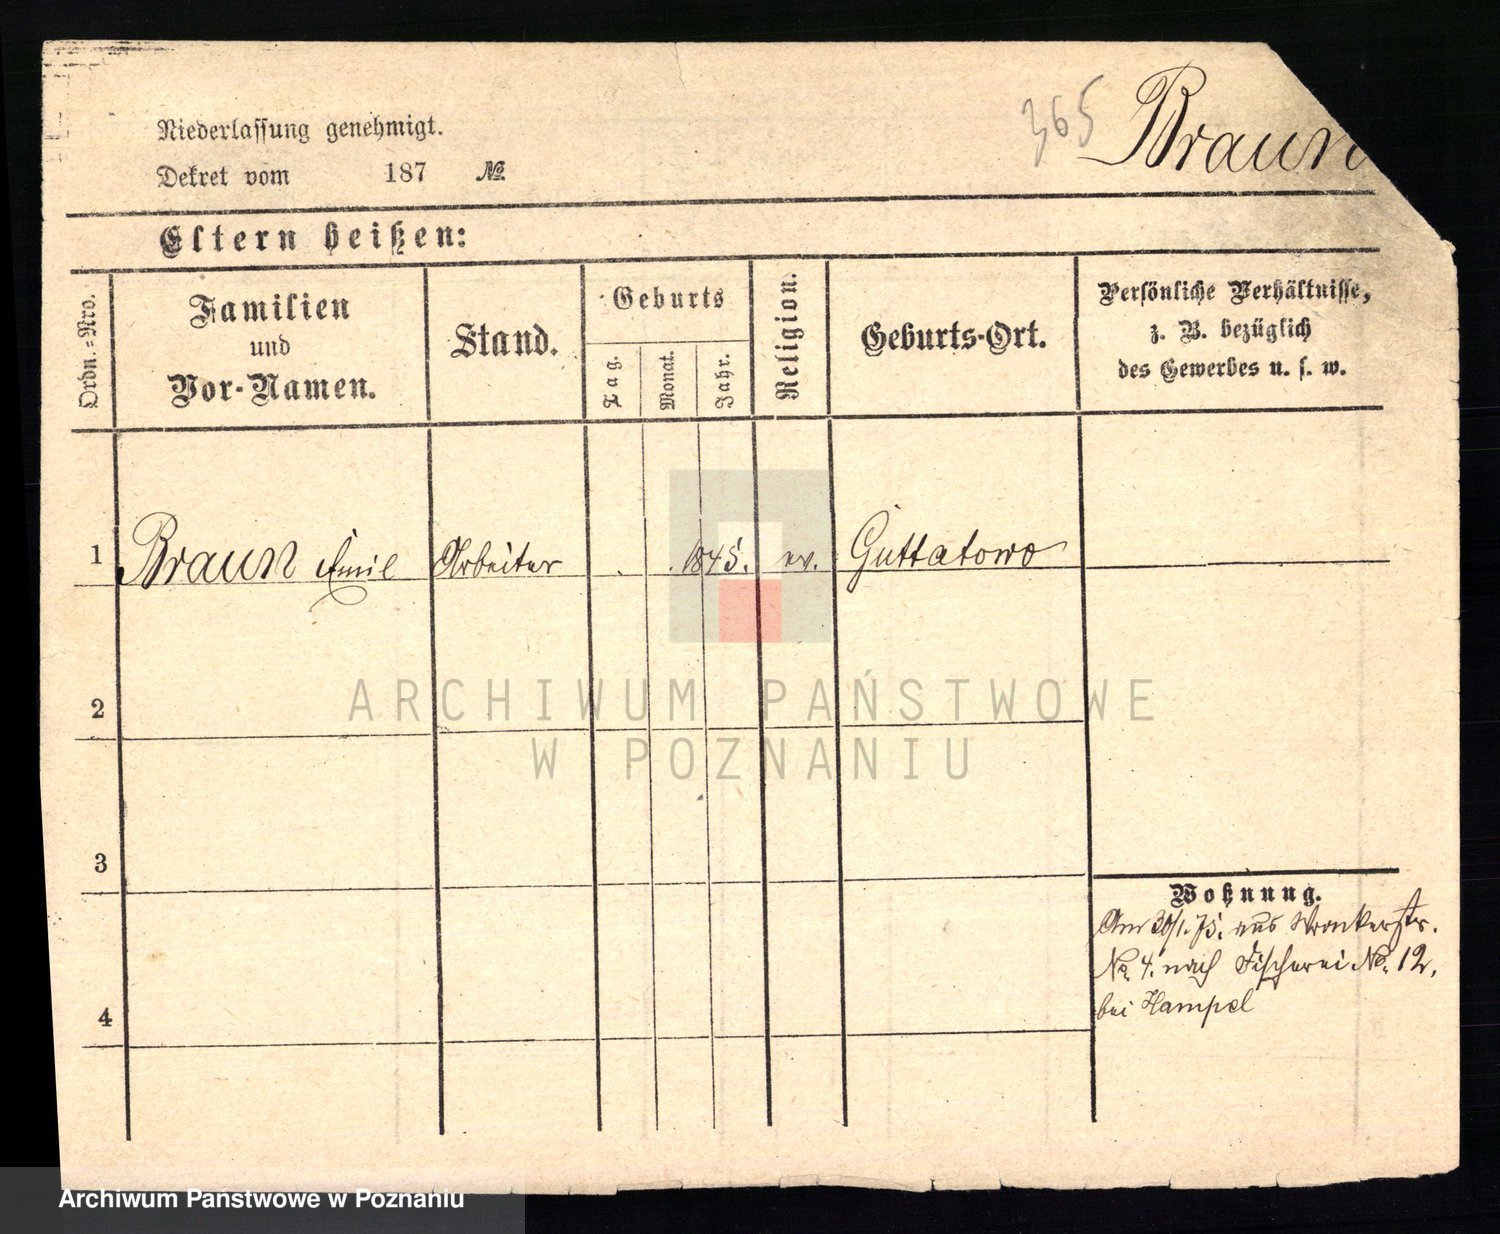 365 Braun
Niederlassung genehmigt.
Dekret vom 187 №
Eltern heißen:
Ordn.-Nro.
Familien
und
Vor-Namen.
Stand.
Geburts
Tag.
Monat.
Jahr.
Religion.
Geburts-Ort.
Persönliche Verhältnisse,
z. B. bezüglich
des Gewerbes u. s. w.
1 Braun Emil Arbeiter 1845. ev. Guttatowo
2
ARCHIWUM PAŃSTWOWE
W POZNANIU
3
Wohnung.
Am 30/1. 75. aus Wronkerstr.
No. 4. nach Fischerei No. 12,
bei Hampel
4
Archiwum Państwowe w Poznaniu